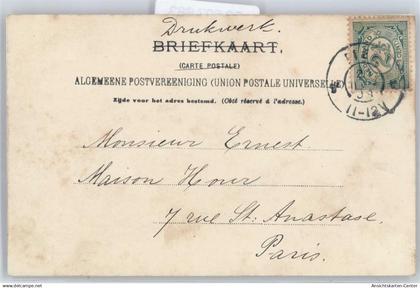 Drukwerk.
BRIEFKAART.
(CARTE POSTALE)
ALGEMEENE POSTVEREENIGING (UNION POSTALE UNIVERSELLE)
Zijde voor het adres bestemd. (Côté réservé à l'adresse.)
11-12V
Monsieur Ernest.
Maison Hour
7 rue St. Anastase.
Paris.
Ansichtskarten-Center